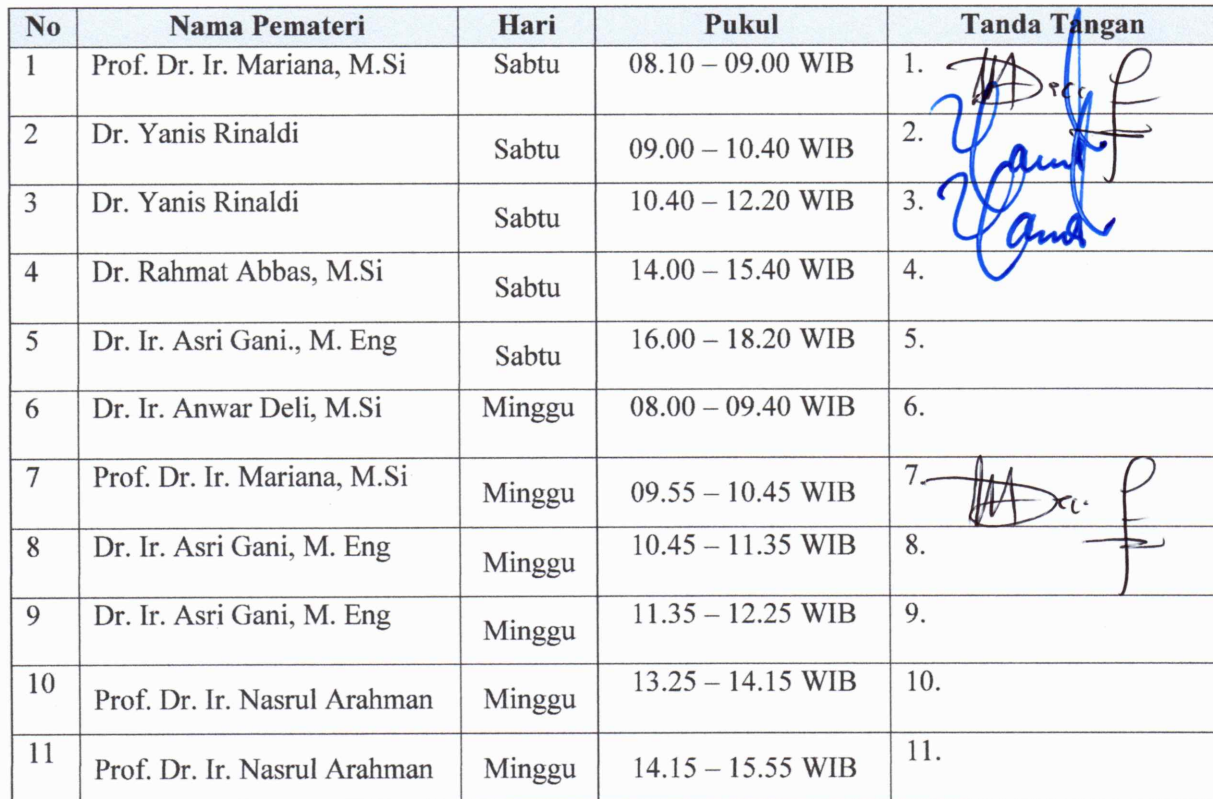 No Nama Pemateri Hari Pukul Tanda Tangan
1 Prof. Dr. Ir. Mariana, M.Si Sabtu 08.10 – 09.00 WIB 1.
2 Dr. Yanis Rinaldi Sabtu 09.00 – 10.40 WIB 2.
3 Dr. Yanis Rinaldi Sabtu 10.40 – 12.20 WIB 3.
4 Dr. Rahmat Abbas, M.Si Sabtu 14.00 – 15.40 WIB 4.
5 Dr. Ir. Asri Gani., M. Eng Sabtu 16.00 – 18.20 WIB 5.
6 Dr. Ir. Anwar Deli, M.Si Minggu 08.00 – 09.40 WIB 6.
7 Prof. Dr. Ir. Mariana, M.Si Minggu 09.55 – 10.45 WIB 7.
8 Dr. Ir. Asri Gani, M. Eng Minggu 10.45 – 11.35 WIB 8.
9 Dr. Ir. Asri Gani, M. Eng Minggu 11.35 – 12.25 WIB 9.
10 Prof. Dr. Ir. Nasrul Arahman Minggu 13.25 – 14.15 WIB 10.
11 Prof. Dr. Ir. Nasrul Arahman Minggu 14.15 – 15.55 WIB 11.